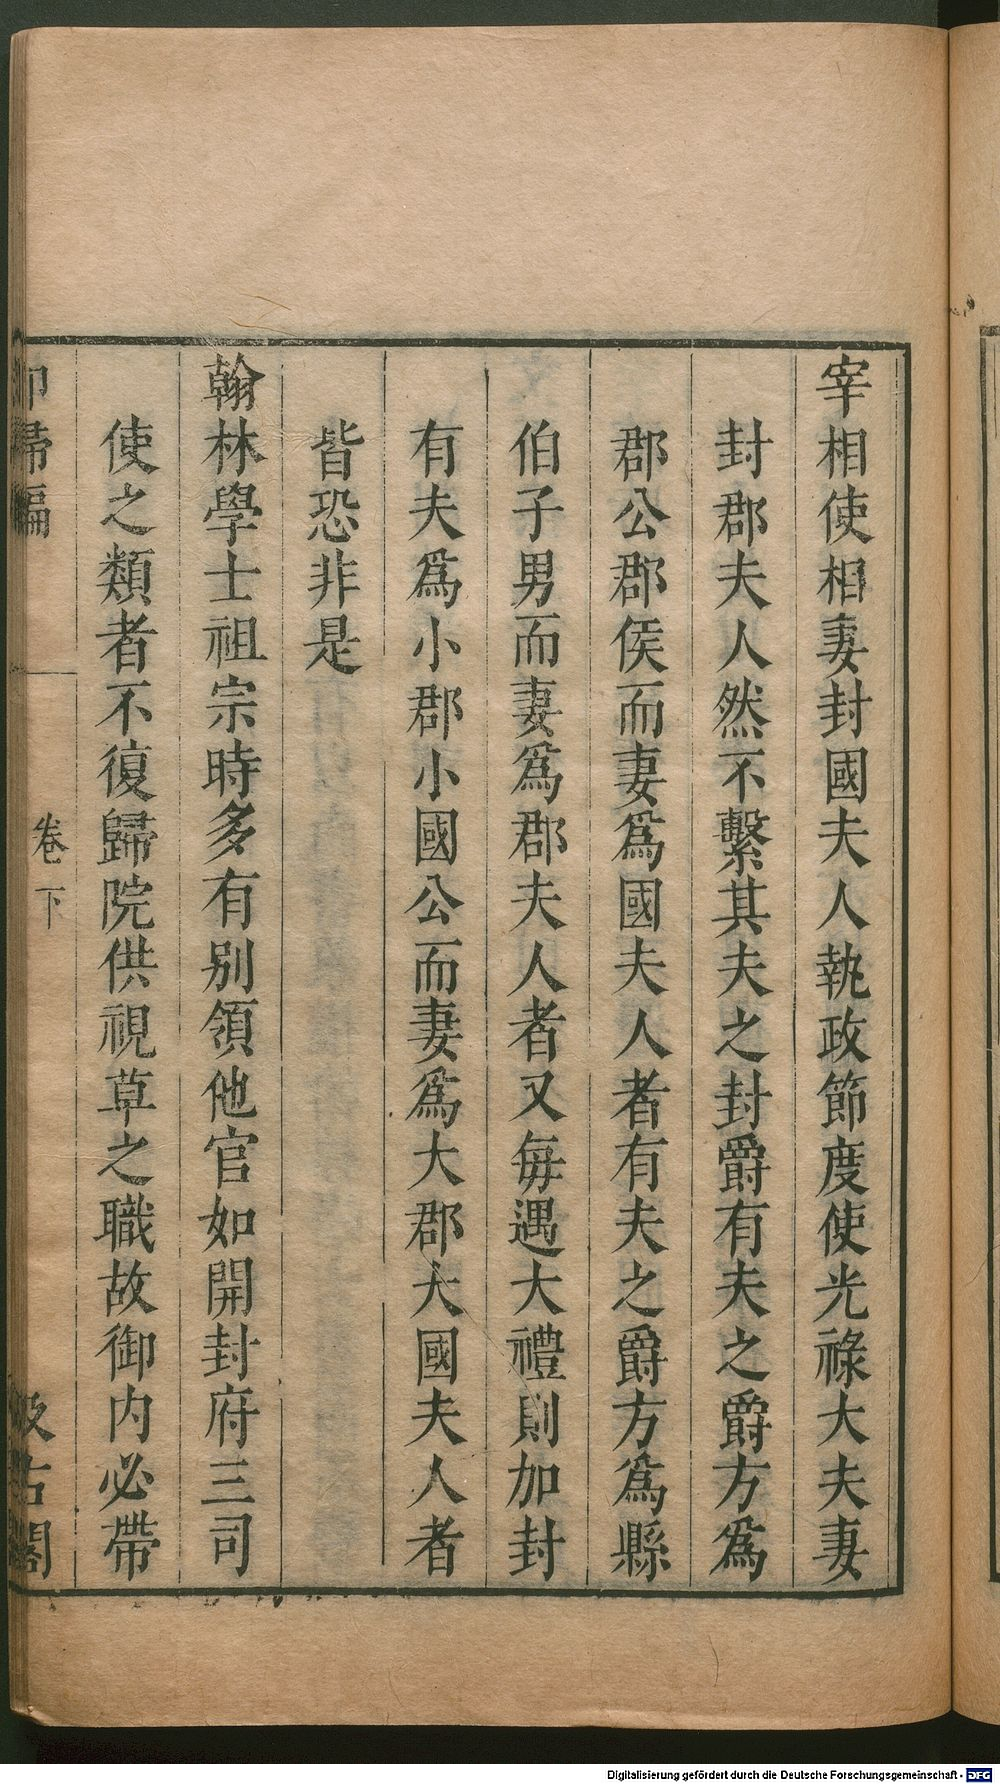 宰相使相妻封國夫人執政節度使光祿大夫妻
封郡夫人然不繫其夫之封爵有夫之爵方爲
郡公郡侯而妻爲國夫人者有夫之爵方爲縣
伯子男而妻爲郡夫人者又每遇大禮則加封
有夫爲小郡小國公而妻爲大郡大國夫人者
皆恐非是
翰林學士祖宗時多有别領他官如開封府三司
使之類者不復歸院供視草之職故御内必帶
卻歸編
卷下
汲古閣
Digitalisierung gefördert durch die Deutsche Forschungsgemeinschaft - DFG